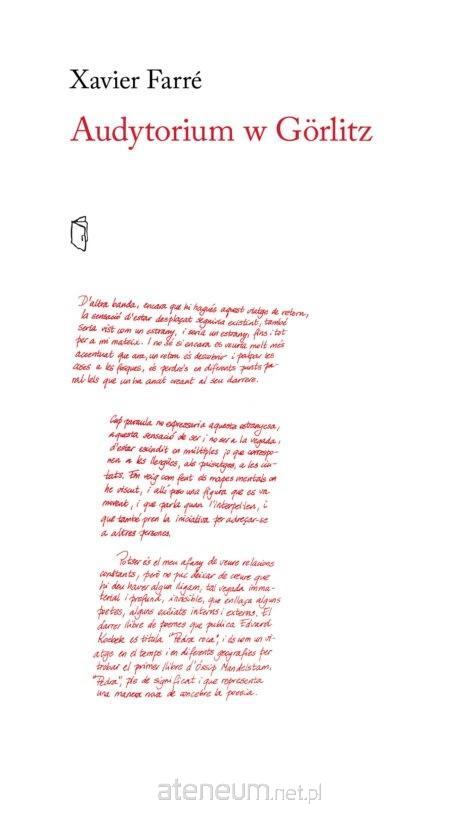 Xavier Farré
Audytorium w Görlitz
D'altra banda, encara que hi hagués aquest viatge de retorn,
la sensació d'estar desplaçat seguiria existint, també
seria vist com un estrany, i seria un estrany, fins i tot
per a mi mateix. I no sé si encara es veuria molt més
accentuat que ara, un retorn és descobrir i palpar les
coses a les fosques, és perdre's en diferents punts pa-
ral·lels que un ha anat creant al seu darrere.
Cap paraula no expressaria aquesta estranyesa,
aquesta sensació de ser i no ser a la vegada,
d'estar escindit en múltiples jo que correspo-
nen a les llengües, als paisatges, a les ciu-
tats. Em veig com fent els mapes mentals on
he viscut, i allí poso una figura que es va
movent, i que parla quan l'interpel·len, i
que també pren la iniciativa per adreçar-se
a altres persones.
Potser és el meu afany de veure relacions
constants, però no puc deixar de creure que
hi deu haver algun lligam, tal vegada imma-
terial i profund, invisible, que enllaça alguns
poetes, alguns exiliats interns i externs. El
darrer llibre de poemes que publica Edvard
Kocbek es titula "Pedra roca", i és com un vi-
atge en el temps i en diferents geografies per
trobar el primer llibre d'Óssip Mandelstam,
"Pedra", ple de significat i que representa
una manera nova de concebre la poesia.
ateneum.net.pl